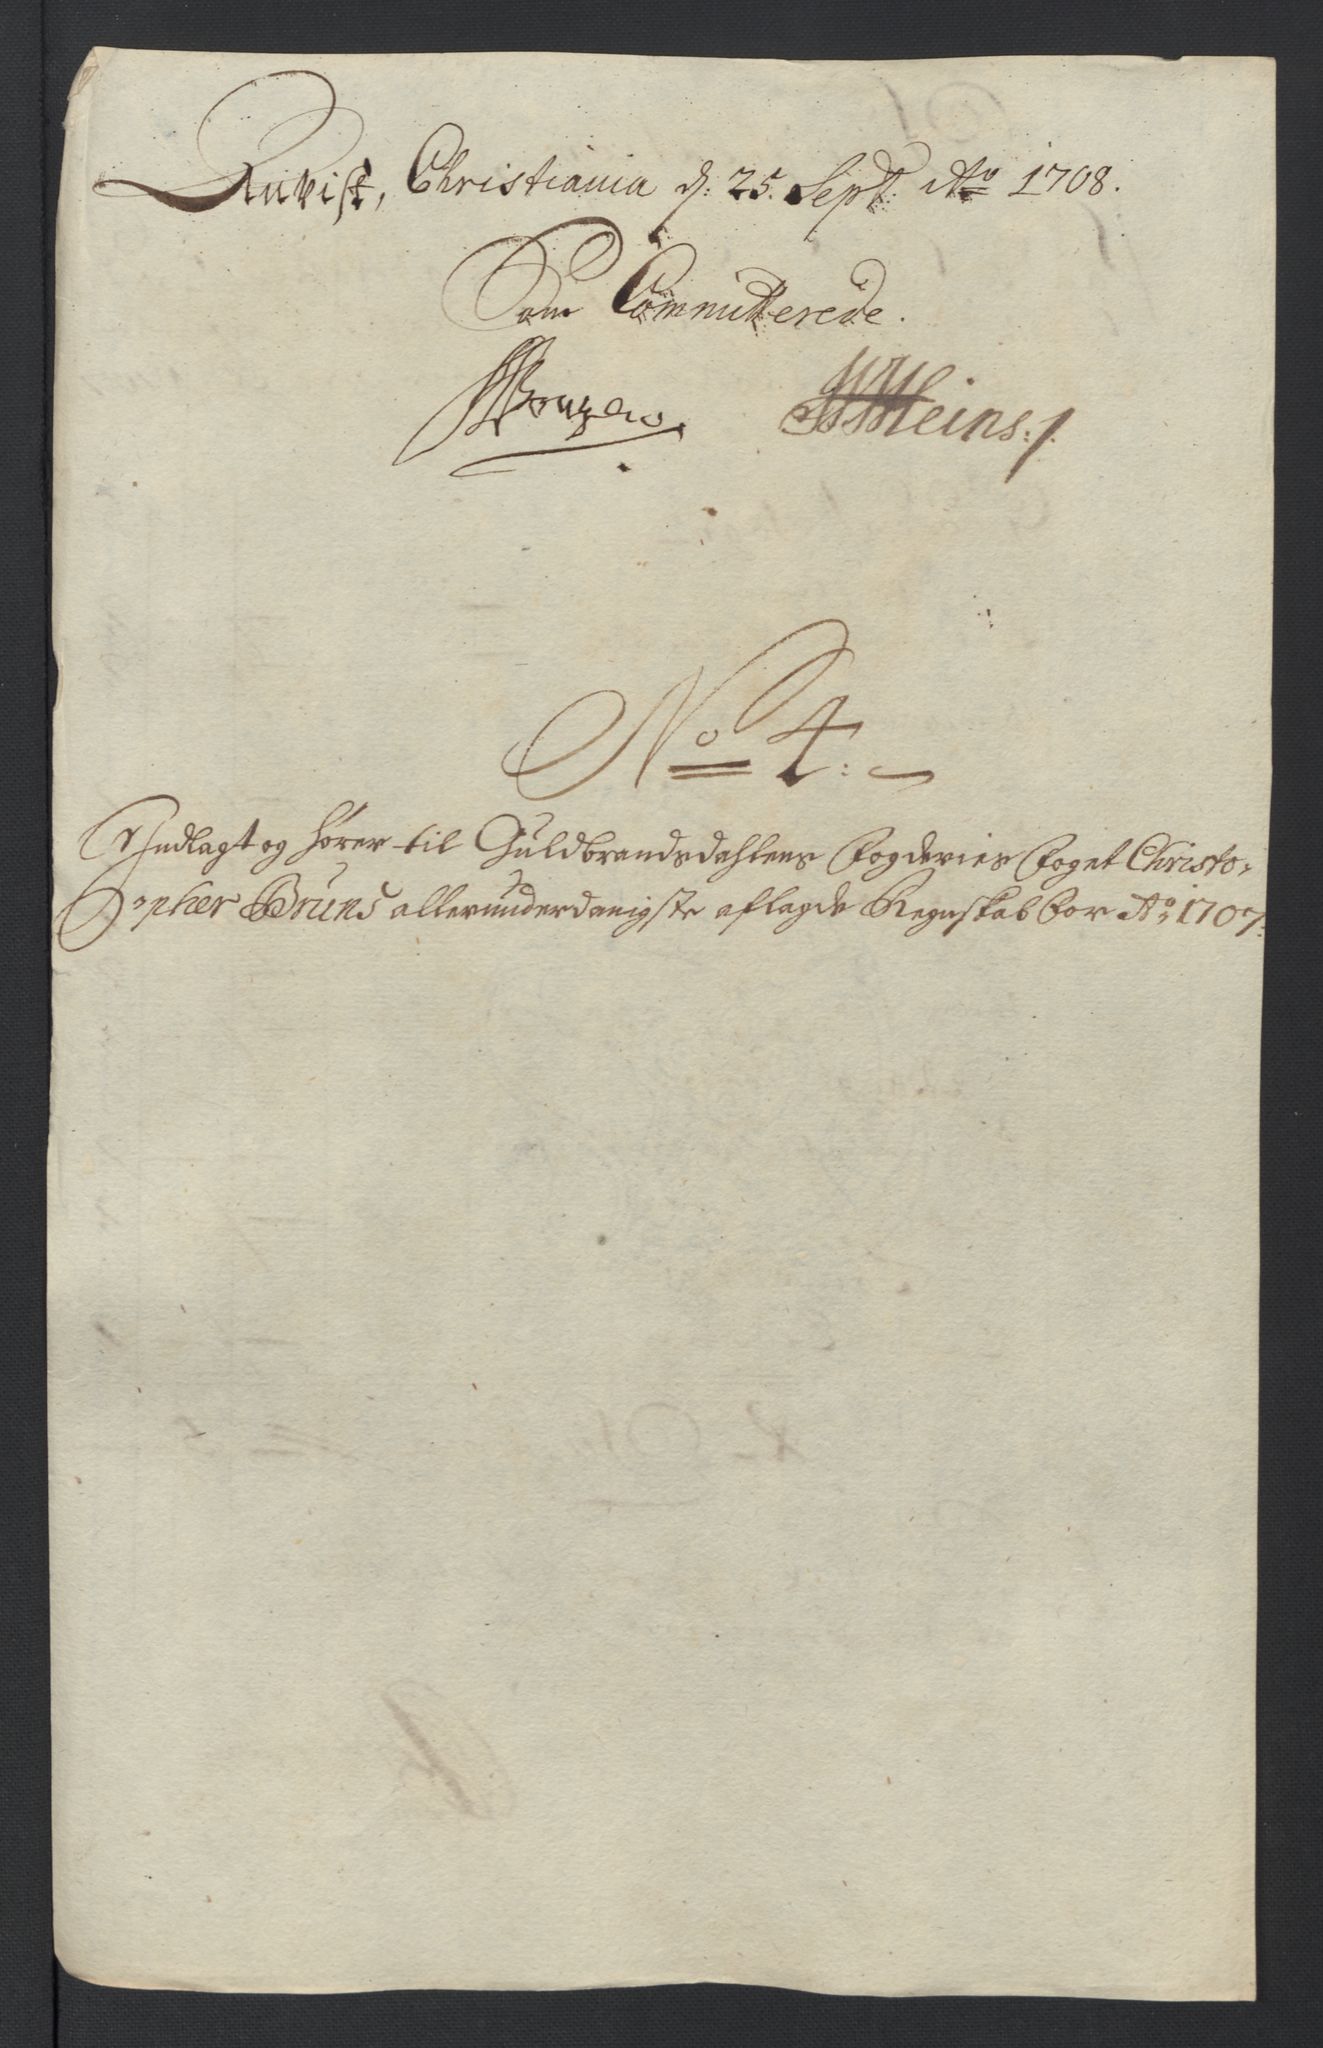 Revist, Christiania d: 25. Sept: Ao 1708.
Som Committerede.
WHeins:/.
No 4:
Indlagt og hører til Guldbrandsdahlens fogderies foget Christo-
pher Bruns allerunderdanigste aflagde Regnskab for Ao 1707: